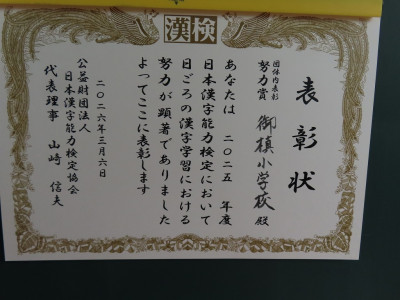 漢検
表彰状
団体内表彰
努力賞
御槙小学校 殿
あなたは 二〇二五 年度
日本漢字能力検定において
日ごろの漢字学習における
努力が顕著でありました
よってここに表彰します
二〇二六年三月六日
公益財団法人
日本漢字能力検定協会
代表理事 山崎 信夫